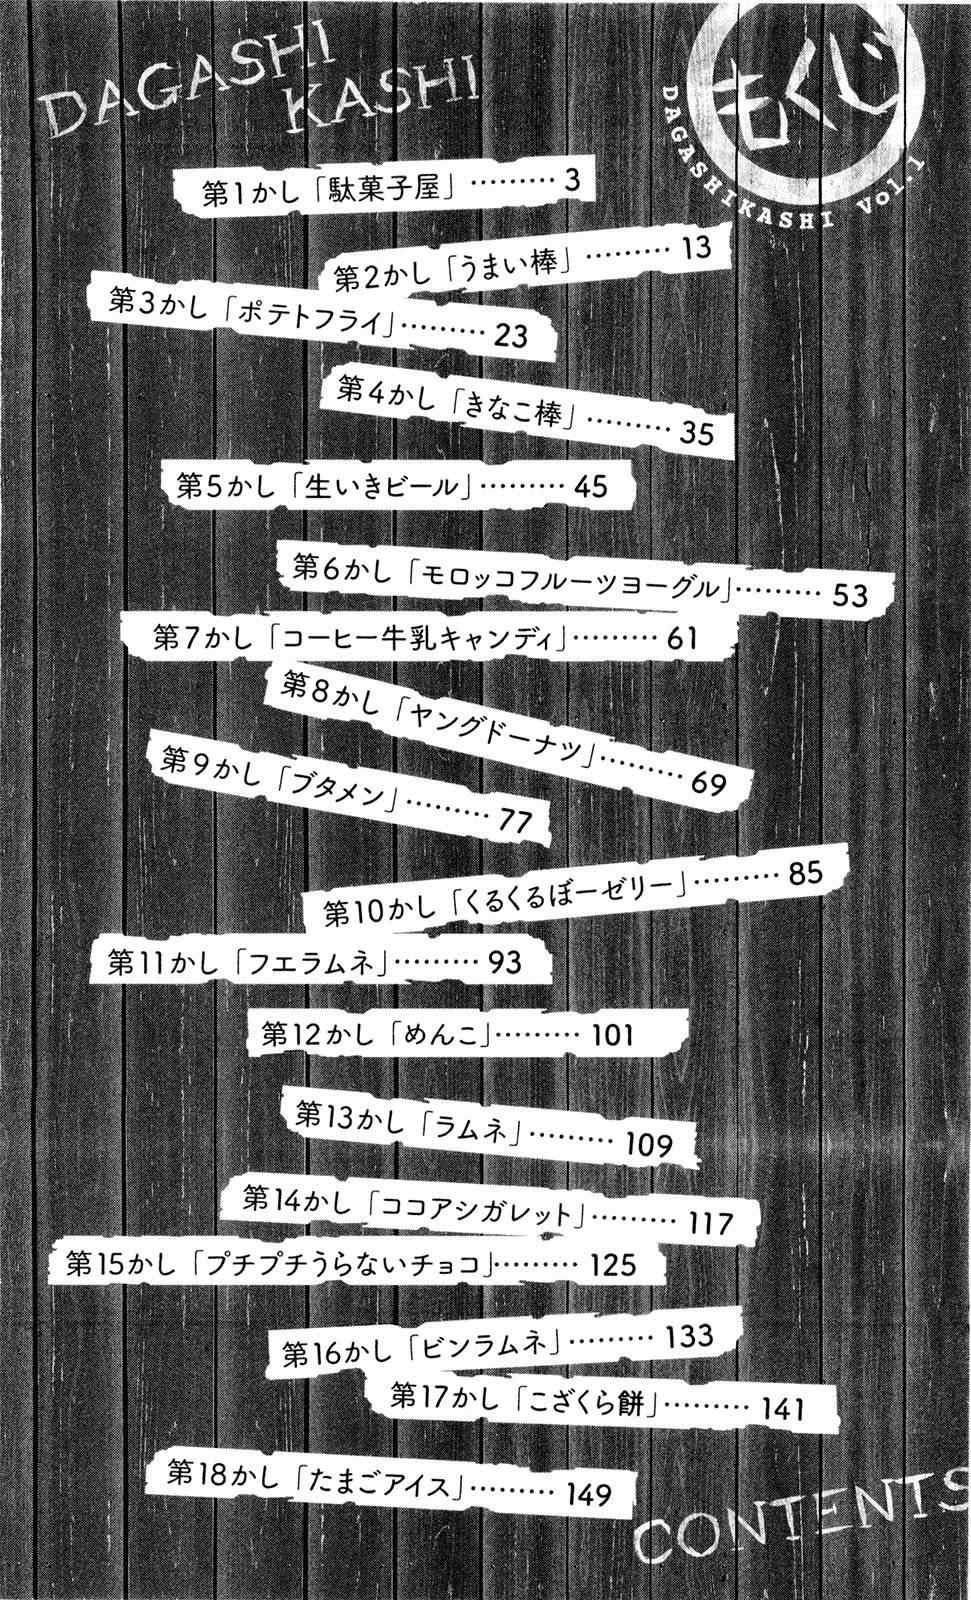 DAGASHI
KASHI
もくじ
DAGASHIKASHI Vol.1
第1かし「駄菓子屋」………3
第2かし「うまい棒」………13
第3かし「ポテトフライ」………23
第4かし「きなこ棒」………35
第5かし「生いきビール」………45
第6かし「モロッコフルーツヨーグル」………53
第7かし「コーヒー牛乳キャンディ」………61
第8かし「ヤングドーナツ」………69
第9かし「ブタメン」………77
第10かし「くるくるぼーゼリー」………85
第11かし「フエラムネ」………93
第12かし「めんこ」………101
第13かし「ラムネ」………109
第14かし「ココアシガレット」………117
第15かし「プチプチうらないチョコ」………125
第16かし「ビンラムネ」………133
第17かし「こざくら餅」………141
第18かし「たまごアイス」………149
CONTENTS